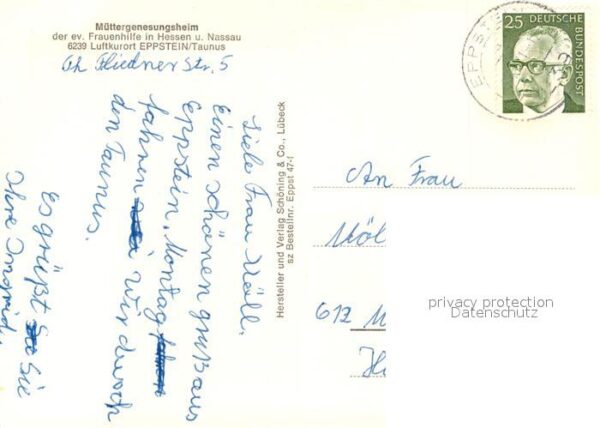 Müttergenesungsheim
der ev. Frauenhilfe in Hessen u. Nassau
6239 Luftkurort EPPSTEIN/Taunus
Th. Fliedner Str. 5
Liebe Frau Möll.
Einen schönen gruß aus
Eppstein, Montag
fahren wir durch
den Taunus.
Es grüßt Sie
Ihre Ingrid.
Hersteller und Verlag Schöning & Co., Lübeck
sz Bestellnr. Eppst 47-f
25 DEUTSCHE
BUNDESPOST
EPPSTEIN
An Frau
Möl
612 M
privacy protection
Datenschutz